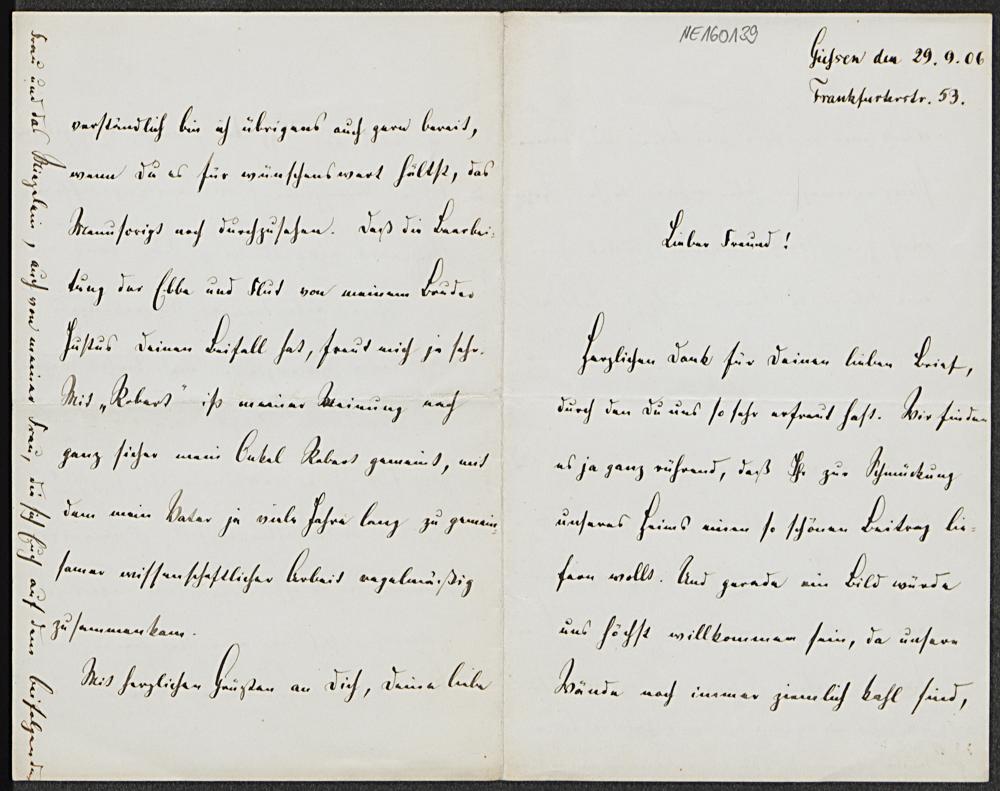 NE160139
Gießen den 29.9.06
Frankfurterstr. 53.
Lieber Freund!
Herzlichen Dank für Deinen lieben Brief,
durch den Du uns so sehr erfreut hast. Wir finden
es ja ganz rührend, daß Ihr zur Schmückung
unseres Heims einen so schönen Beitrag lie-
fern wollt. Und gerade ein Bild würde
uns höchst willkommen sein, da unsere
Wände noch immer ziemlich kahl sind,
verständlich bin ich übrigens auch gern bereit,
wenn Du es für wünschenswert hältst, das
Manuscript noch durchzusehen. Daß die Bearbei-
tung der Ebbe und Flut von meinem Bruder
Justus Deinen Beifall hat, freut mich ja sehr.
Mit „Robert" ist meiner Meinung nach
ganz sicher mein Onkel Robert gemeint, mit
dem mein Vater ja viele Jahre lang zu gemein-
samer wissenschaftlicher Arbeit regelmäßig
zusammenkam.
Mit herzlichen Grüßen an Dich, Deine liebe
Frau und das , auch von meiner Frau, die sich Euch auf dem beifolgenden